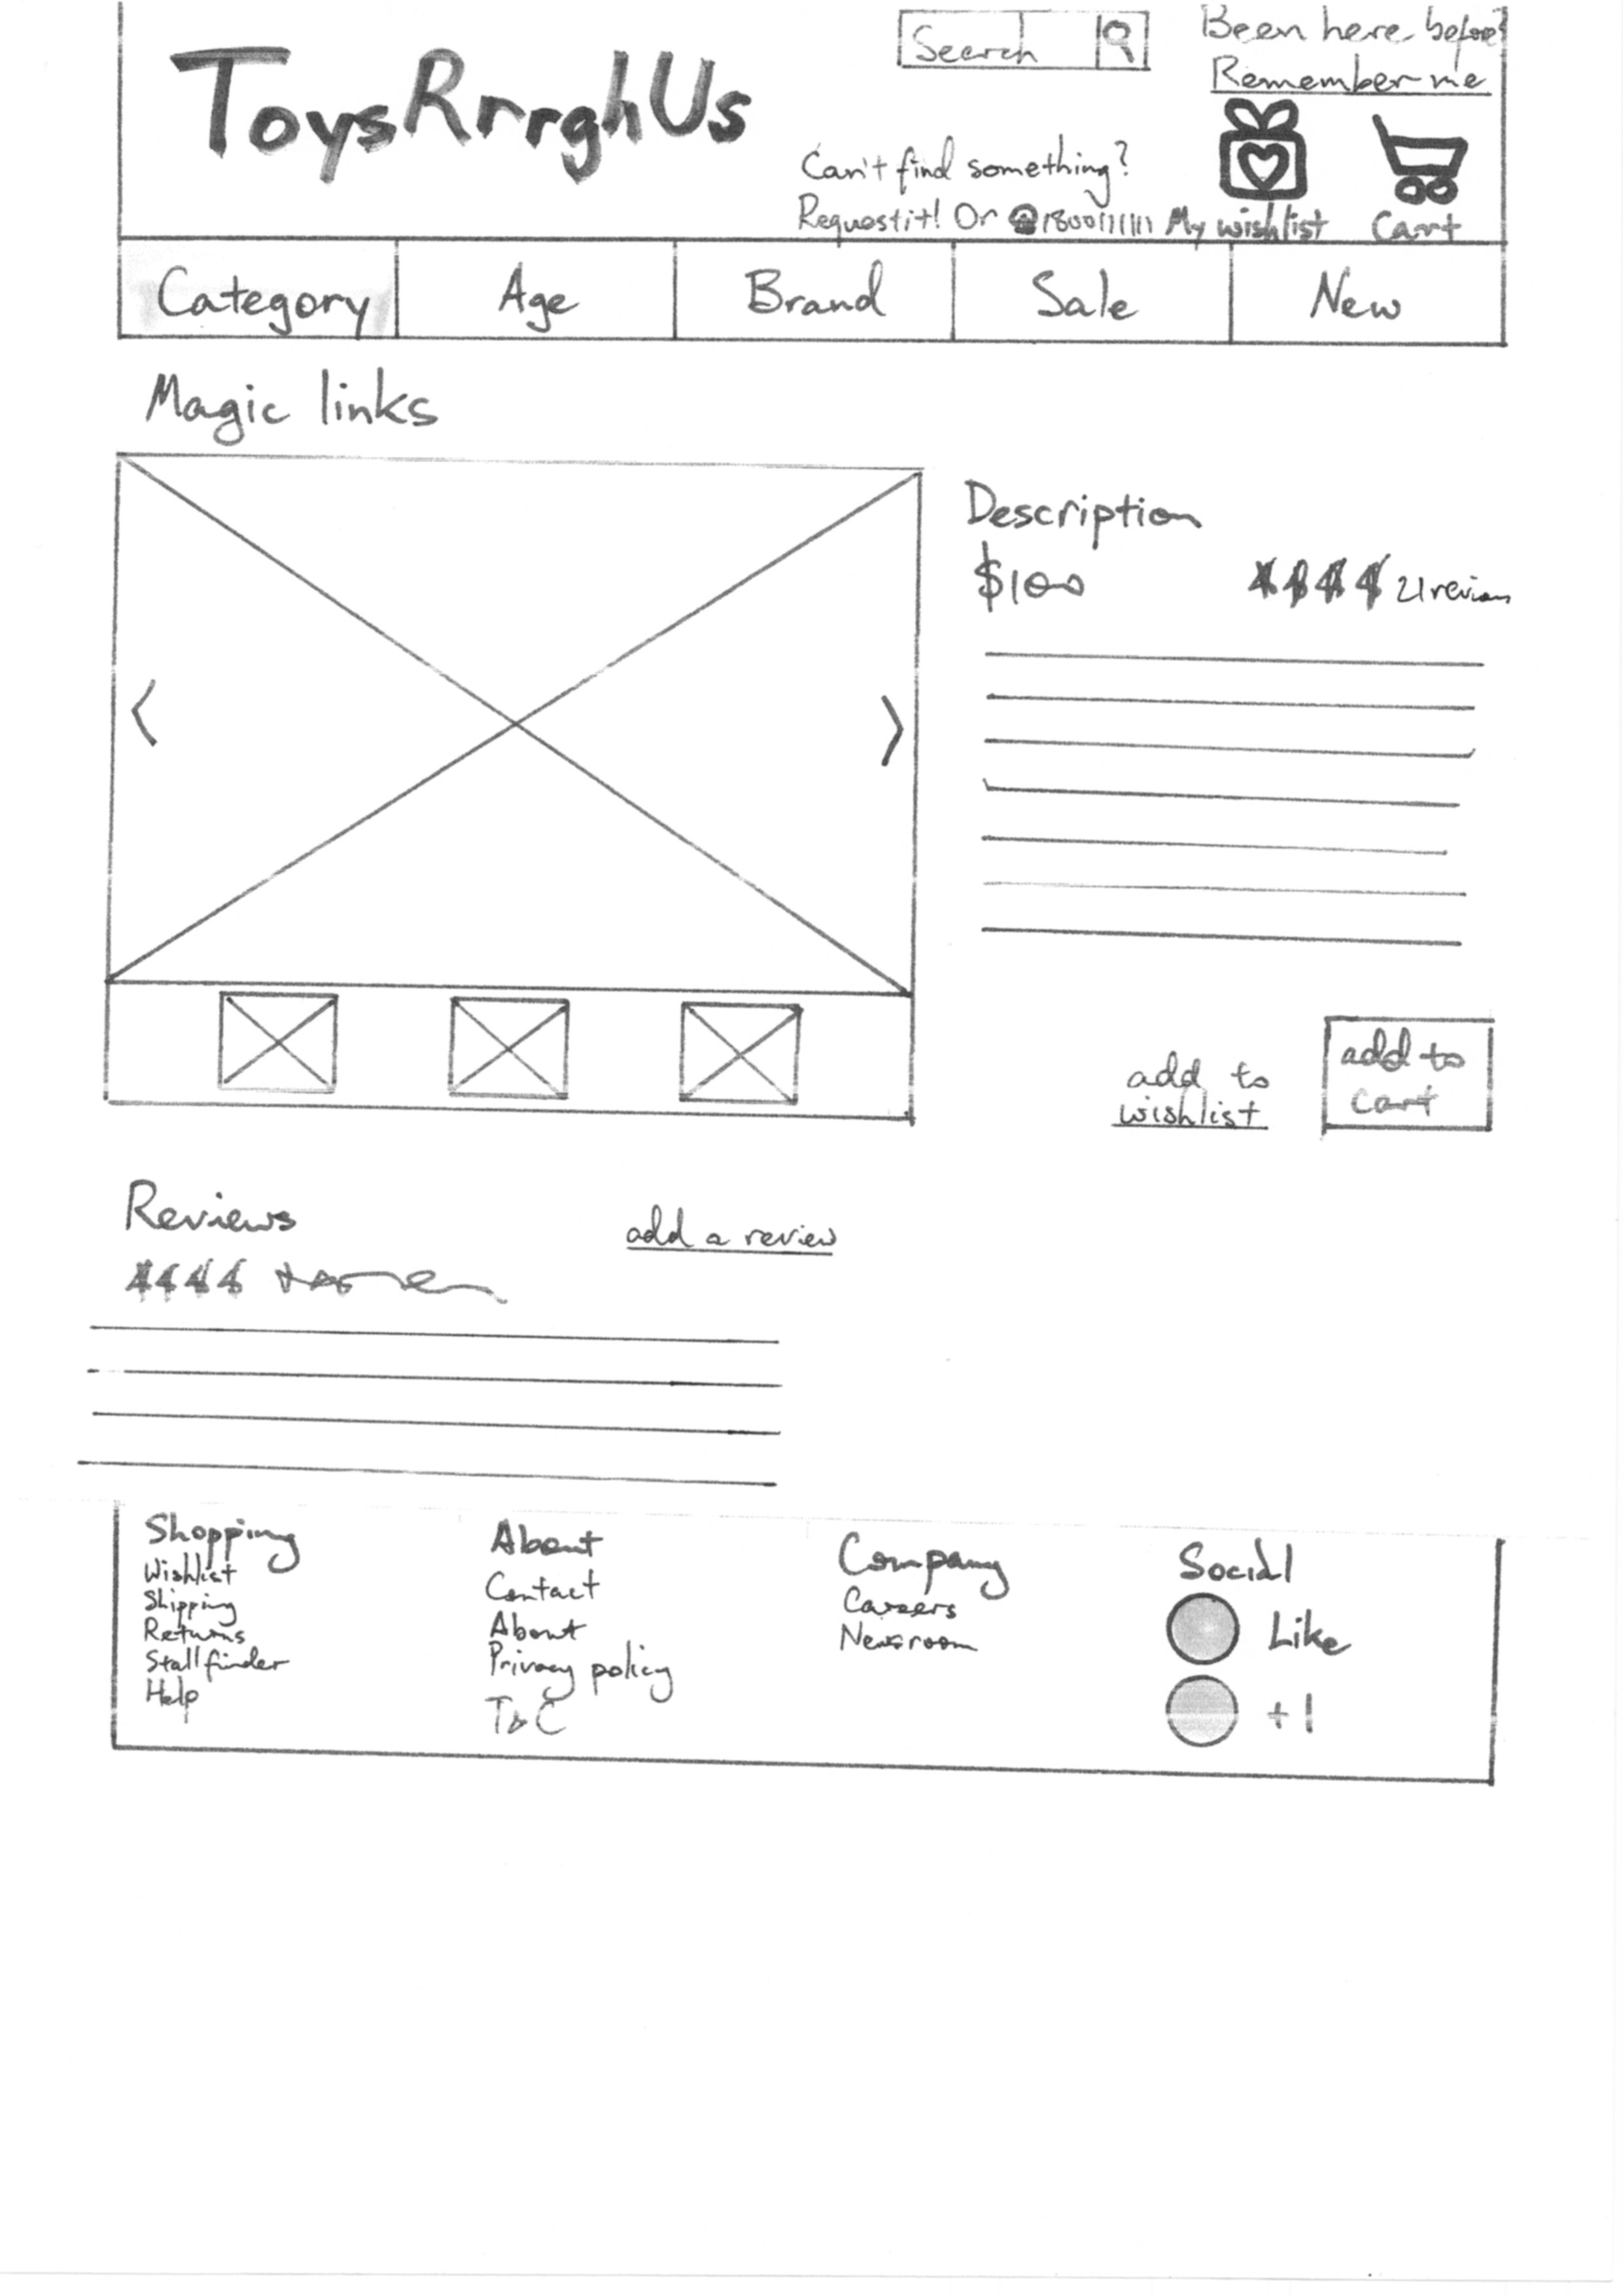 Search
Been here before?
Remember me
ToysRrrghUs
Can't find something?
Request it! Or ☎1800111111
My wishlist
Cart
Category
Age
Brand
Sale
New
Magic links
Description
$100
21
add to
wishlist
add to
cart
Reviews
add a review
Shopping
Wishlist
Shipping
Returns
Stallfinder
Help
About
Contact
About
Privacy policy
T&C
Company
Careers
Newsroom
Social
Like
+1